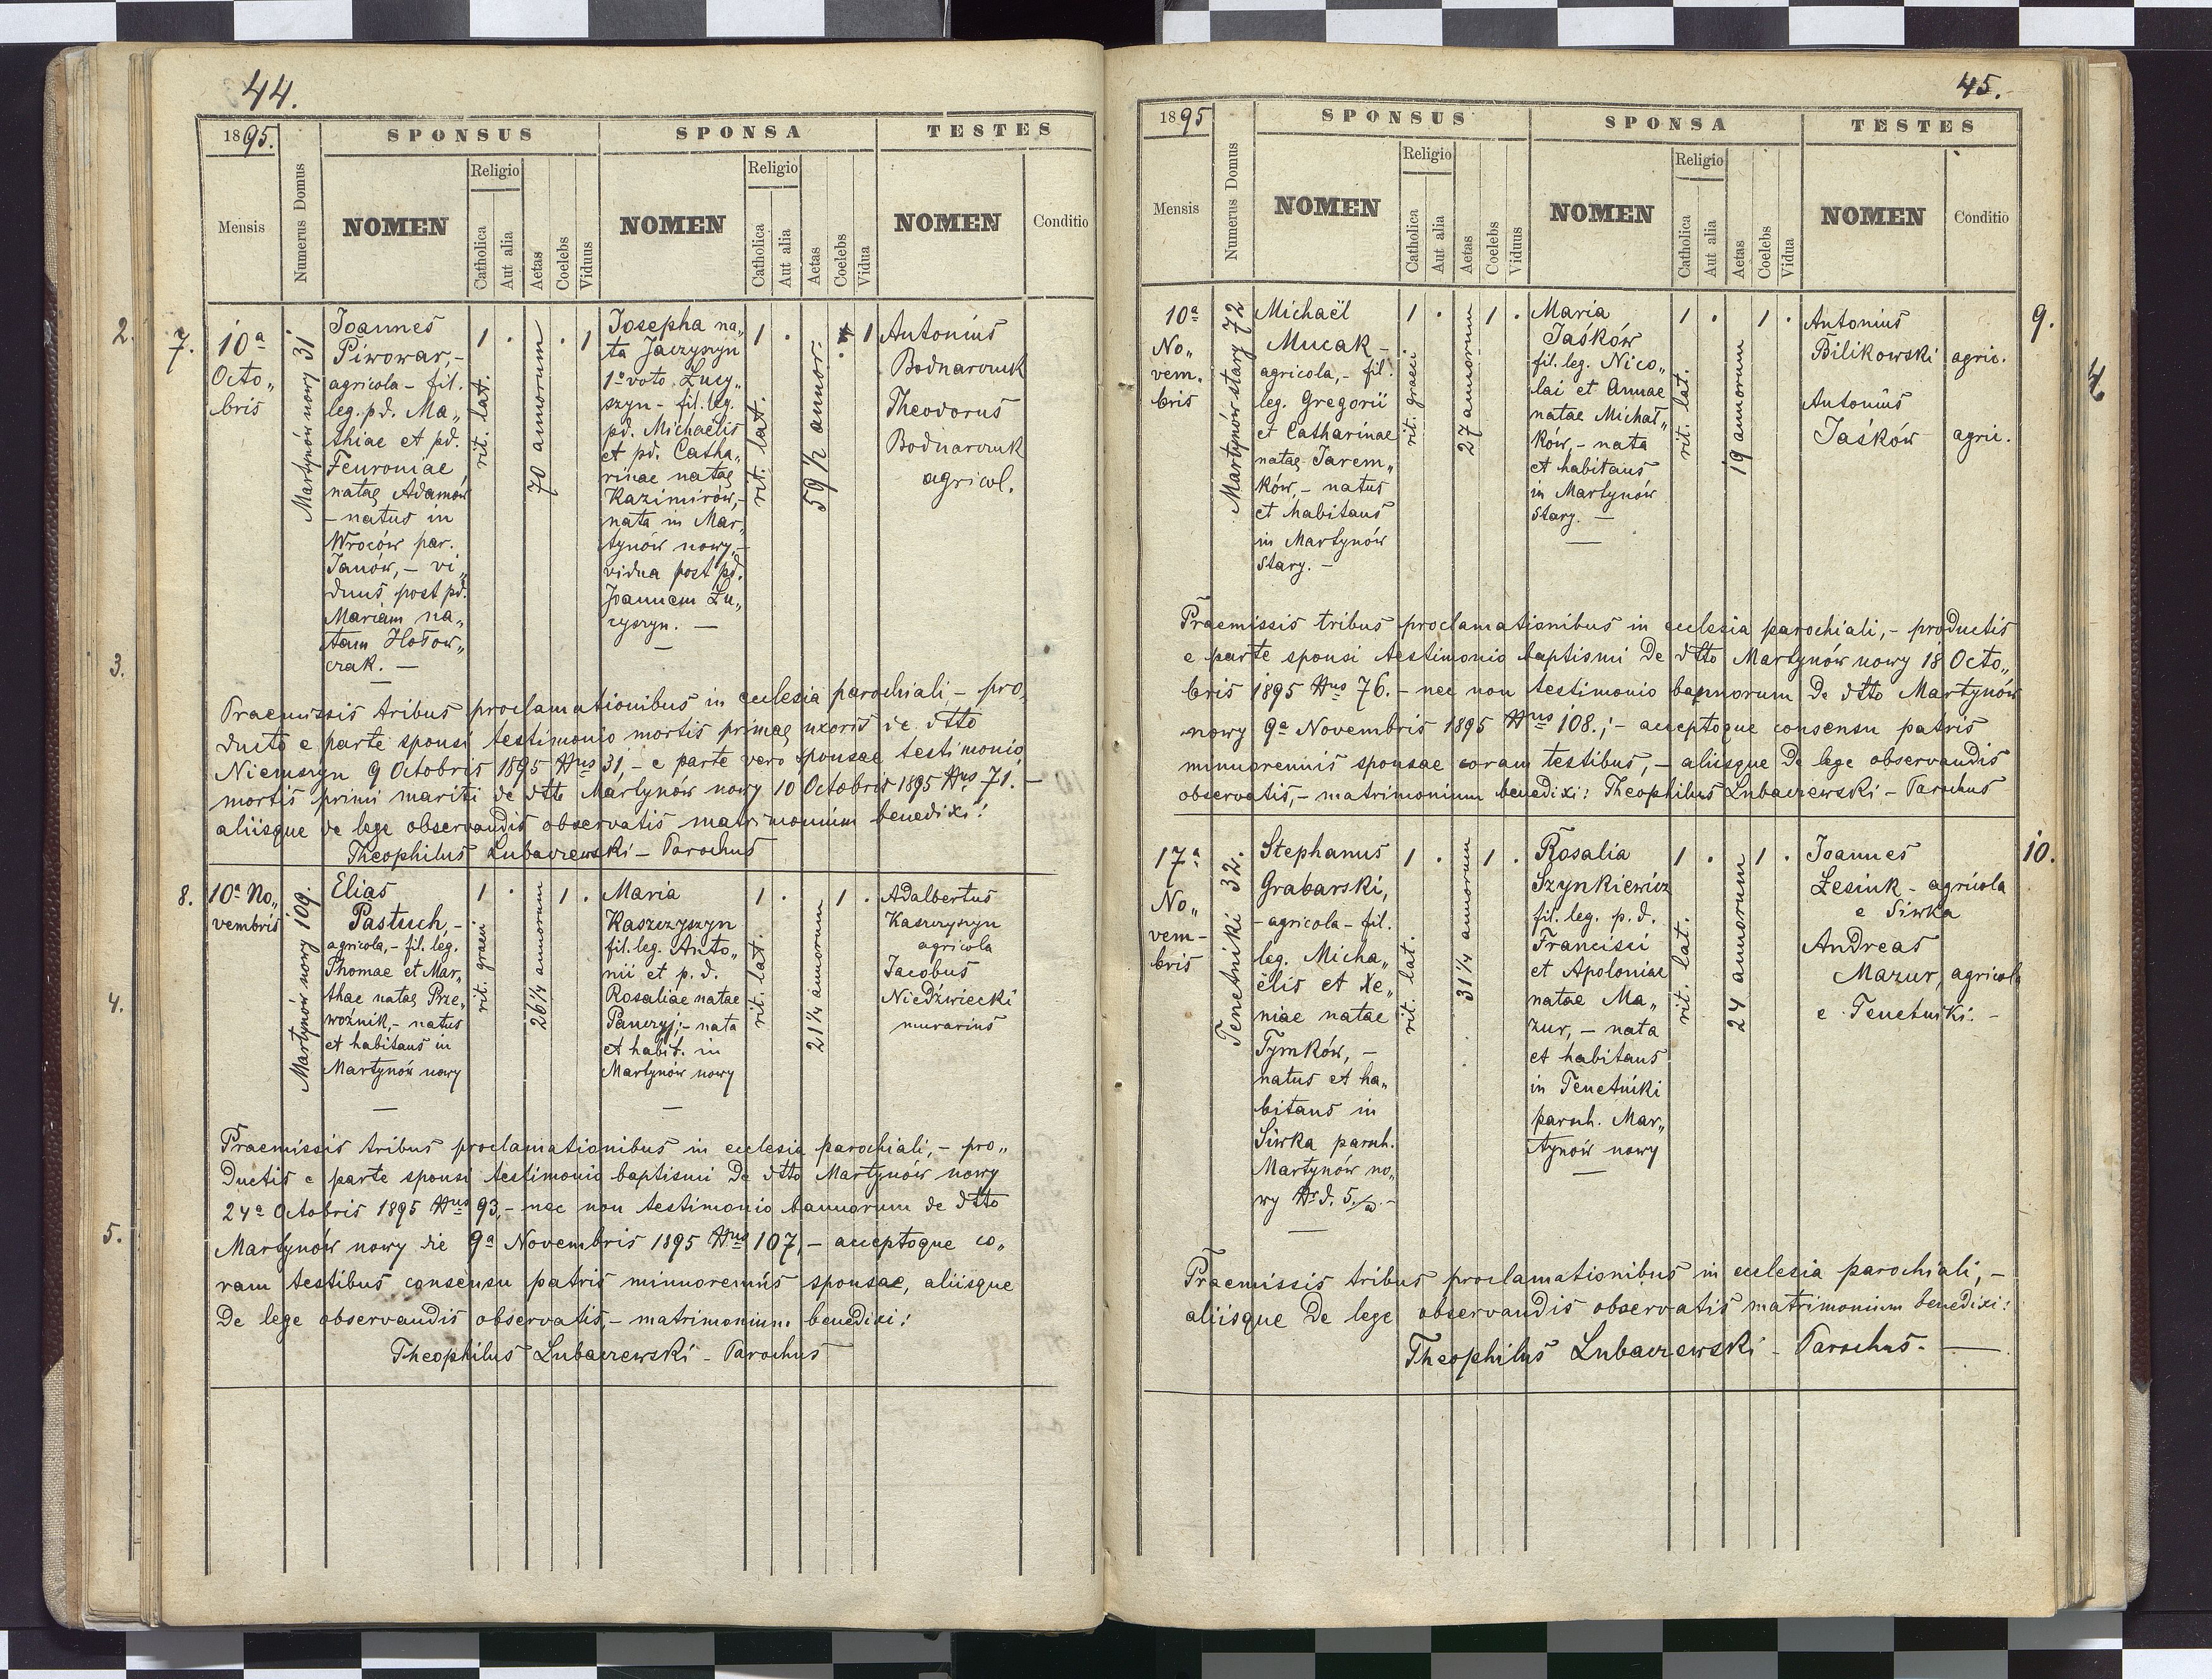 44.
1895.
SPONSUS
SPONSA
TESTES
Mensis
Numerus Domus
NOMEN
Religio
Catholica
Aut alia
Aetas
Coelebs
Viduus
NOMEN
Religio
Catholica
Aut alia
Aetas
Coelebs
Vidua
NOMEN
Conditio
2.
3.
4.
5.
7.
10a
Octo„
bris
Martynów nowy 31
Joannes
Piwowar,-
agricola - fil.
leg. pd. Ma„
thiae et pd.
Feuroniae
natae Adamów
- natus in
Wroców par.
Janów, - vi„
duus post pd.
Mariam na„
tam Hołow„
czak. -
1 .
rit. lat.
70 annorum
. 1
Josepha na„
ta Jaczyszyn
1o voto Łucy„
szyn - fil. leg.
pd. Michaelis
et pd. Catha„
rinae natae
Kazimirów,-
nata in Mar„
tynów nowy,-
vidua post pd.
Joannem Łu„
cyszyn. -
1 .
rit. lat.
59 1/2 annor.
. 1
Antonius
Bodnarczuk
Theodorus
Bodnarczuk
agricol.
Praemissis tribus proclamationibus in ecclesia parochiali - pro„
ducto e parte sponsi testimonio mortis primae uxoris de dtto
Niemszyn 9 Octobris 1895 Nus 31,- e parte vero sponsae testimonio
mortis primi mariti de dtto Martynów nowy 10 Octobris 1895 Nus 71. -
aliisque de lege observandis observatis matrimonium benedixi:
Theophilus Lubaczewski - Parochus
8.
10a No„
vembris
Martynów nowy 109.
Elias
Pastuch,-
agricola,- fil. leg.
Thomae et Mar„
thae natae Prze„
woźnik,- natus
et habitans in
Martynów nowy
1 .
rit. graeci
26 1/4 annorum
1 .
Maria
Kaszczyszyn
fil. leg. Anto„
nii et p. d.
Rosaliae natae
Panczyj,- nata
et habit. in
Martynów nowy
1 .
rit. lat.
21 1/4 annorum
1 .
Adalbertus
Kaszczyszyn
agricola
Jacobus
Niedźwiecki
murarius
Praemissis tribus proclamationibus in ecclesia parochiali,- pro„
ductis e parte sponsi testimonio baptismi de dtto Martynów nowy
24a Octobris 1895 Nus 93,- nec non testimonio bannorum de dtto
Martynów nowy die 9a Novembris 1895 Nus 107,- acceptoque co„
ram testibus consensu patris minorennis sponsae, aliisque
de lege observandis observatis,- matrimonium benedixi:
Theophilus Lubaczewski - Parochus
45.
1895
SPONSUS
SPONSA
TESTES
Mensis
Numerus Domus
NOMEN
Religio
Catholica
Aut alia
Aetas
Coelebs
Viduus
NOMEN
Religio
Catholica
Aut alia
Aetas
Coelebs
Vidua
NOMEN
Conditio
10a
No„
vem„
bris
Martynów stary 72
Michaël
Mucak -
agricola,- fil.
leg. Gregorii
et Catharinae
natae Jarem„
ków,- natus
et habitans
in Martynów
stary. -
1 .
rit. graeci
27 annorum
1 .
Maria
Jaśków
fil. leg. Nico„
lai et Annae
natae Michał„
ków,- nata
et habitans
in Martynów
stary. -
1 .
rit. lat.
19 annorum
1 .
Antonius
Bilikowski agric.
Antonius
Jaśków agric.
9.
Praemissis tribus proclamationibus in ecclesia parochiali,- productis
e parte sponsi testimonio baptismi de dtto Martynów nowy 18 Octo„
bris 1895 Nus 76.- nec non testimonio bannorum de dtto Martynów
nowy 9a Novembris 1895 Nus 108.;- acceptoque consensu patris
minorennis sponsae coram testibus,- aliisque de lege observandis
observatis,- matrimonium benedixi: Theophilus Lubaczewski - Parochus
17a
No„
vem-
bris
Tenetniki 32.
Stephanus
Grabarski,
- agricola - fil.
leg. Micha„
ëlis et Xe„
niae natae
Tymków, -
natus et ha„
bitans in
Siwka paroch.
Martynów no„
wy Nr d. 5. -
1 .
rit. lat.
31 1/4 annorum
1 .
Rosalia
Szynkiewicz
fil. leg. p. d.
Francisci
et Apoloniae
natae Ma„
zur,- nata
et habitans
in Tenetniki
paroch. Mar„
tynów nowy
1 .
rit. lat.
24 annorum
1 .
Joannes
Łesiuk - agricola
e Siwka
Andreas
Mazur, agricola
e Tenetniki. -
10.
Praemissis tribus proclamationibus in ecclesia parochiali,-
aliisque de lege observandis observatis matrimonium benedixi:
Theophilus Lubaczewski - Parochus. -